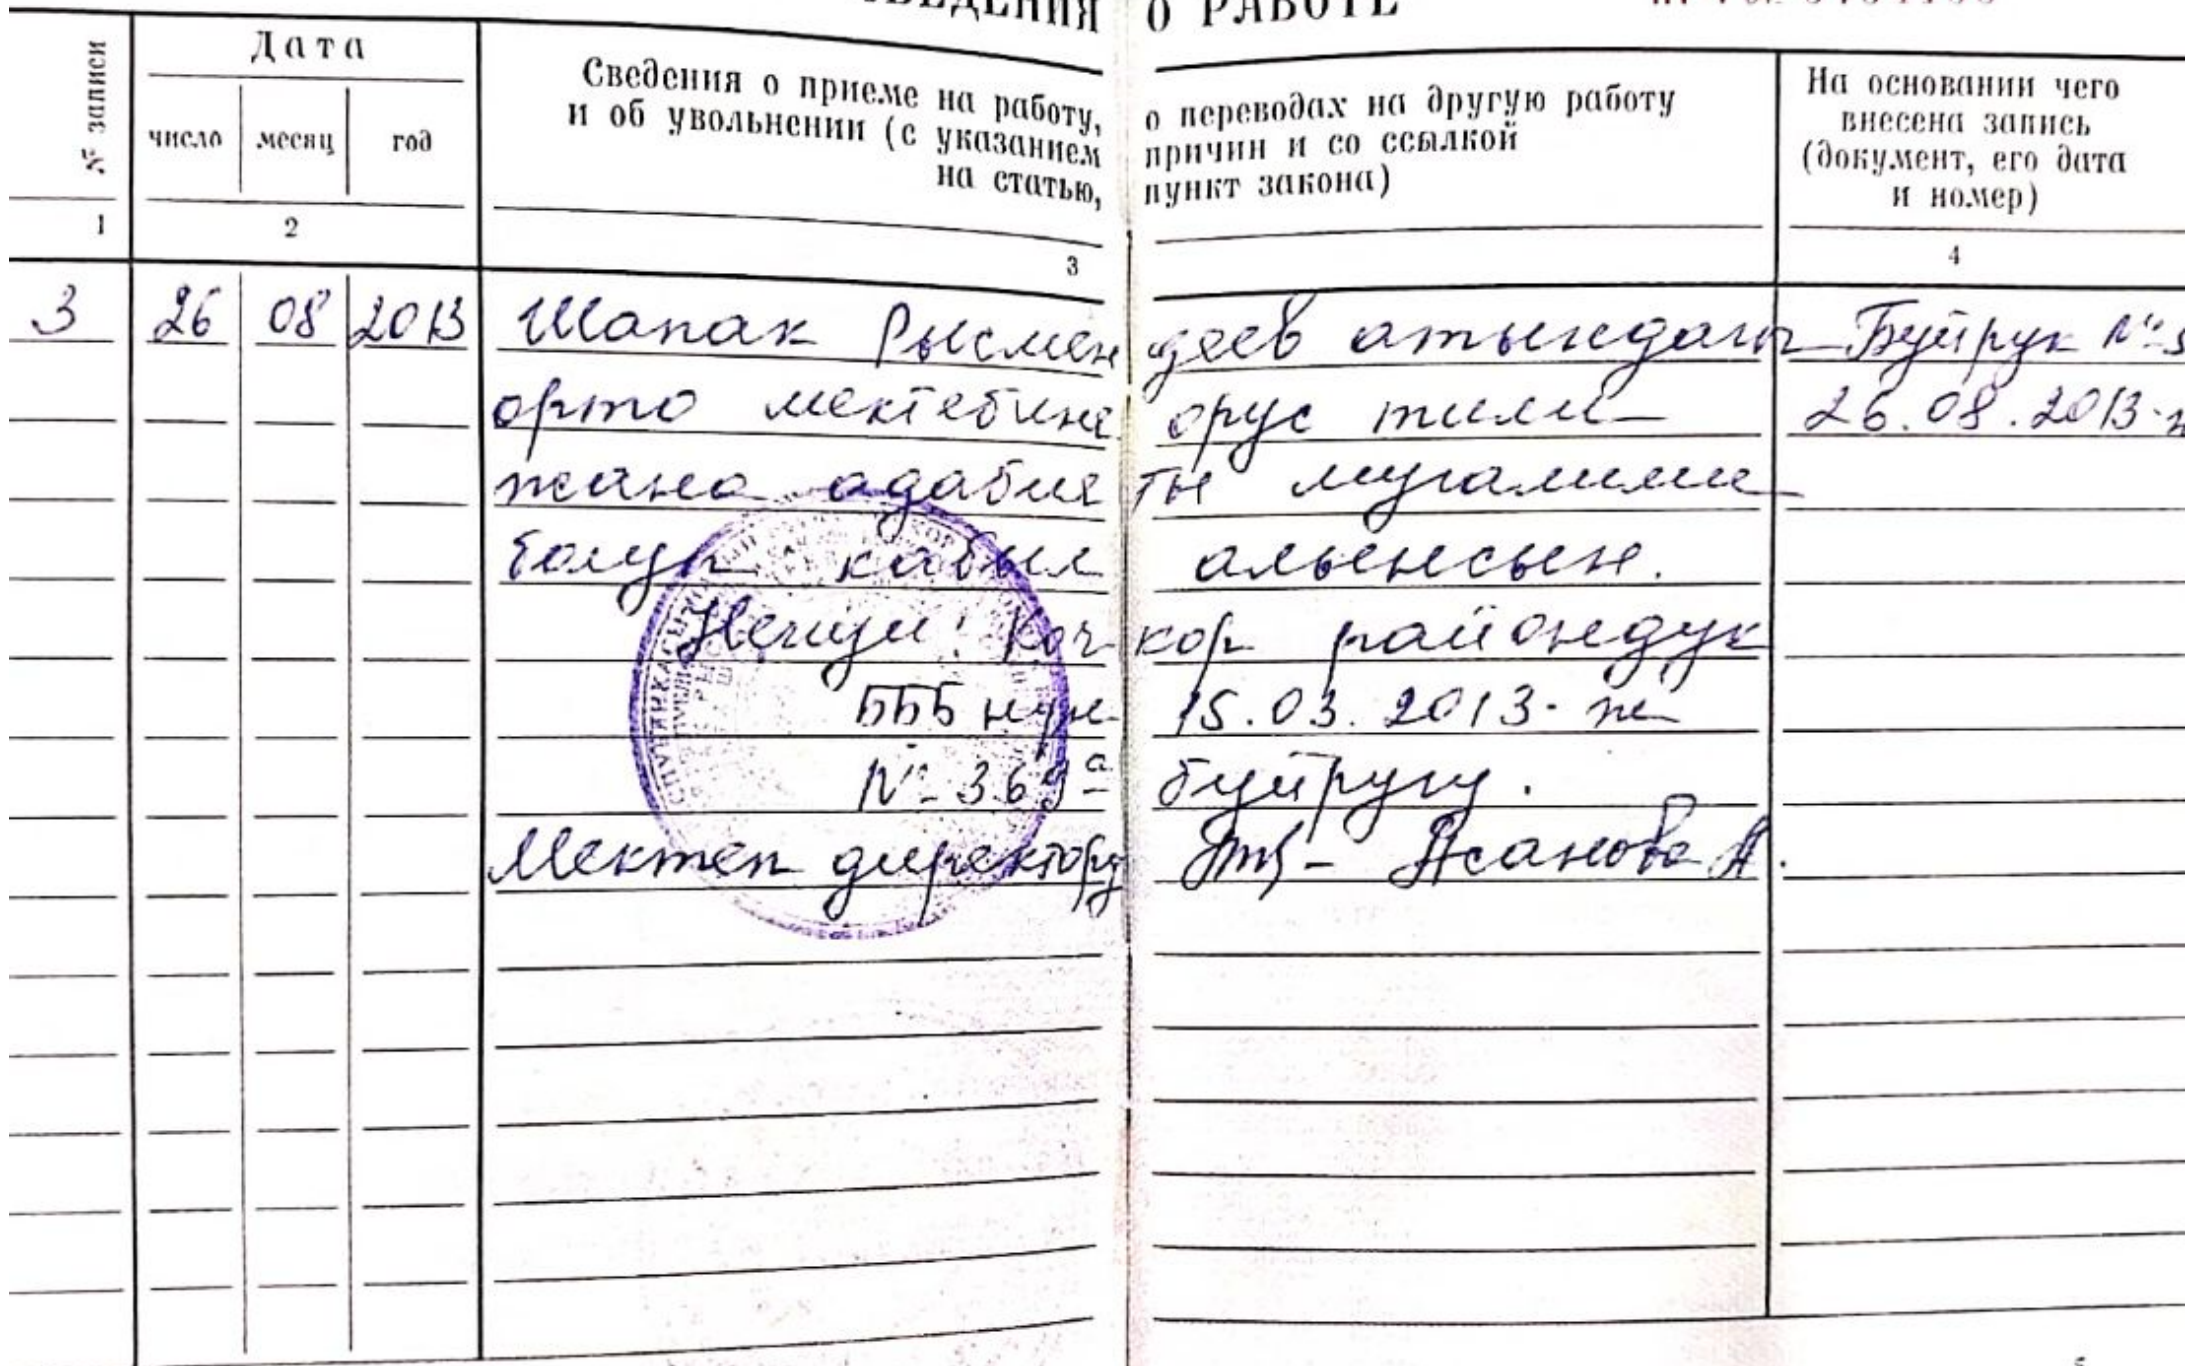 О РАБОТЕ
№ записи
Дата
число месяц год
Сведения о приеме на работу, о переводах на другую работу
и об увольнении (с указанием причин и со ссылкой
на статью, пункт закона)
На основании чего
внесена запись
(документ, его дата
и номер)
1 2 3 4
3 26 08 2013 Шапак Рысмендеев атындагы Буйрук №
орто мектебине орус тили 26.08.2013-ж
жана адабияты мугалими
болуп кабыл алынсын.
Негизи: Кочкор райондук
БББ нун 15.03.2013-ж
№-369а буйругу.
Мектеп директору Асанова А.
5